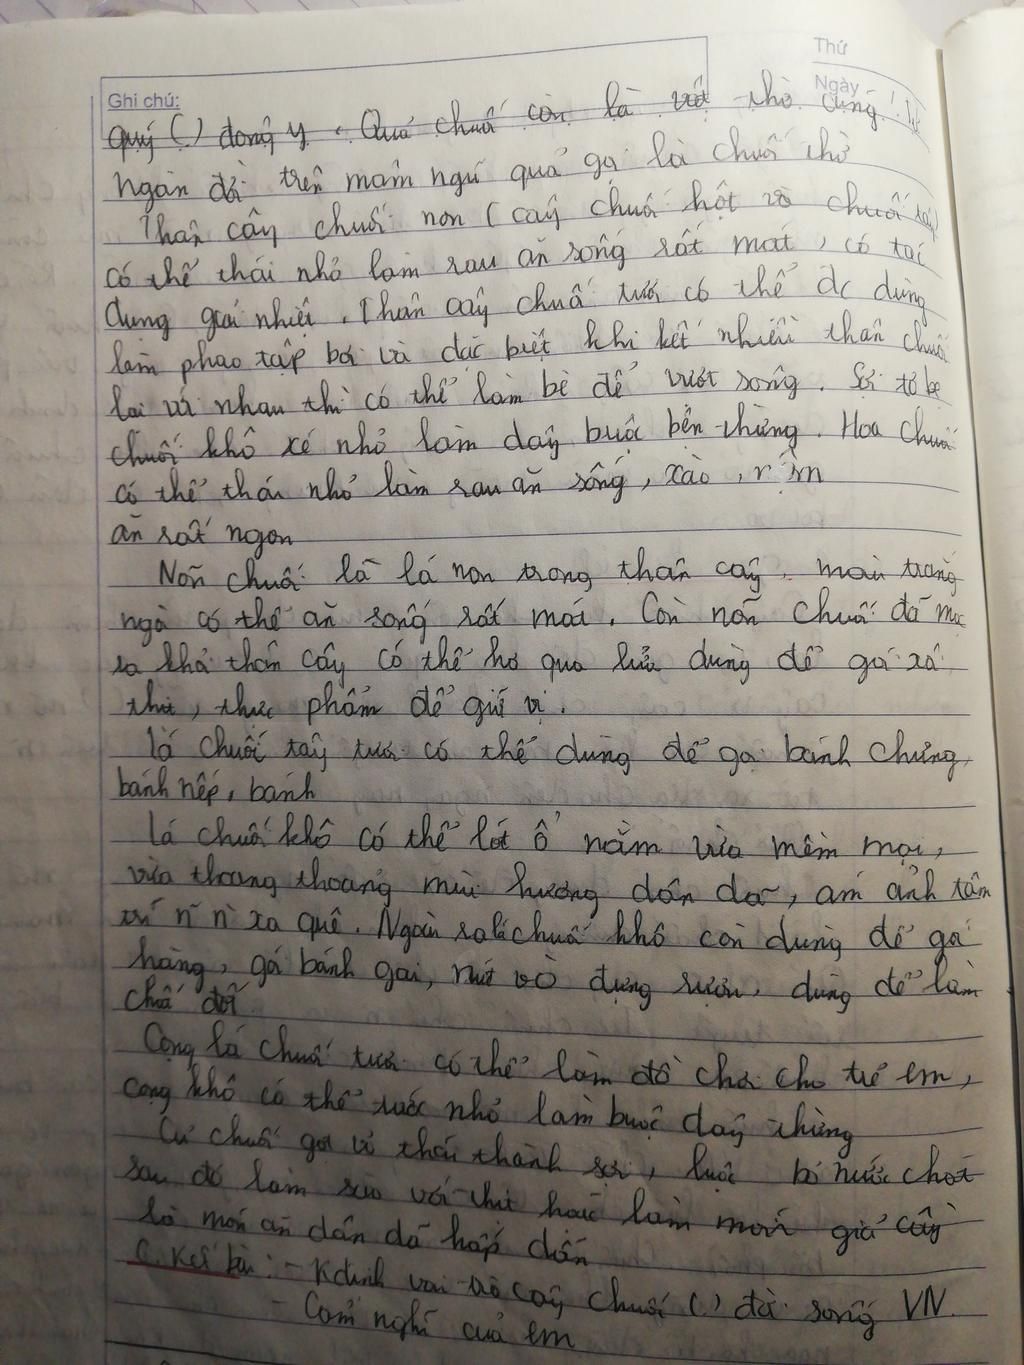 Thứ
Ngày
Ghi chú:
quý (.) đông y. Quả chuối còn là vật thờ cúng. từ
ngàn đời trên mâm ngũ quả gọi là chuối thờ
Thân cây chuối non (cây chuối hột và chuối tây)
có thể thái nhỏ làm rau ăn sống rất mát, có tác
dụng giải nhiệt. Thân cây chuối tươi có thể đc dùng
làm phao tập bơi và đặc biệt khi kết nhiều thân chuối
lại với nhau thì có thể làm bè để vượt sông. Sợi từ bẹ
chuối khô xé nhỏ làm dây buộc bền thừng. Hoa chuối
có thể thái nhỏ làm rau ăn sống, xào,
ăn rất ngon
Nõn chuối là lá non trong thân cây, màu trắng
ngà có thể ăn sống rất mát. Còn nõn chuối đã mọc
ra khỏi thân cây có thể hơ qua lửa dùng để gói xôi
thịt, thực phẩm để giữ vị.
lá chuối tây tươi có thể dùng để gói bánh chưng,
bánh nếp, bánh
Lá chuối khô có thể lót ổ nằm vừa mềm mại,
vừa thoang thoảng mùi hương dân dã, ám ảnh tâm
trí xa quê. Ngoài ra lá chuối khô còn dùng để gói
hàng, gói bánh gai, nút vò đựng rượu, dùng để làm
chất đốt
Cọng lá chuối tươi có thể làm đồ chơi cho trẻ em,
cọng khô có thể tước nhỏ làm buộc dây thừng
Củ chuối gọt vỏ thái thành sợi, luộc bỏ nước chát
sau đó làm với thịt hoặc làm món giả cầy
là món ăn dân dã hấp dẫn
C. Kết bài: - Kđịnh vai trò cây chuối (.) đời sống VN
- Cảm nghĩ của em